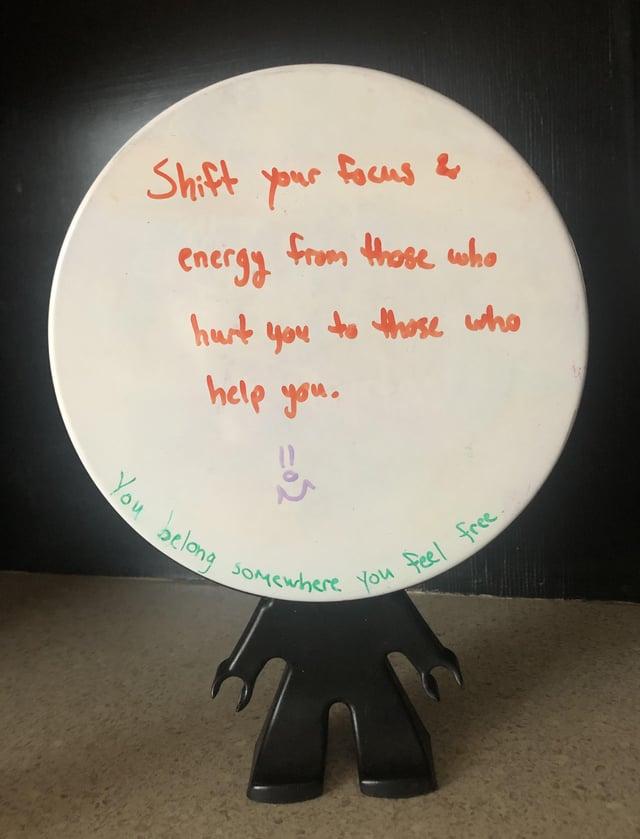 Shift your focus &
energy from those who
hurt you to those who
help you.
You belong somewhere you feel free.